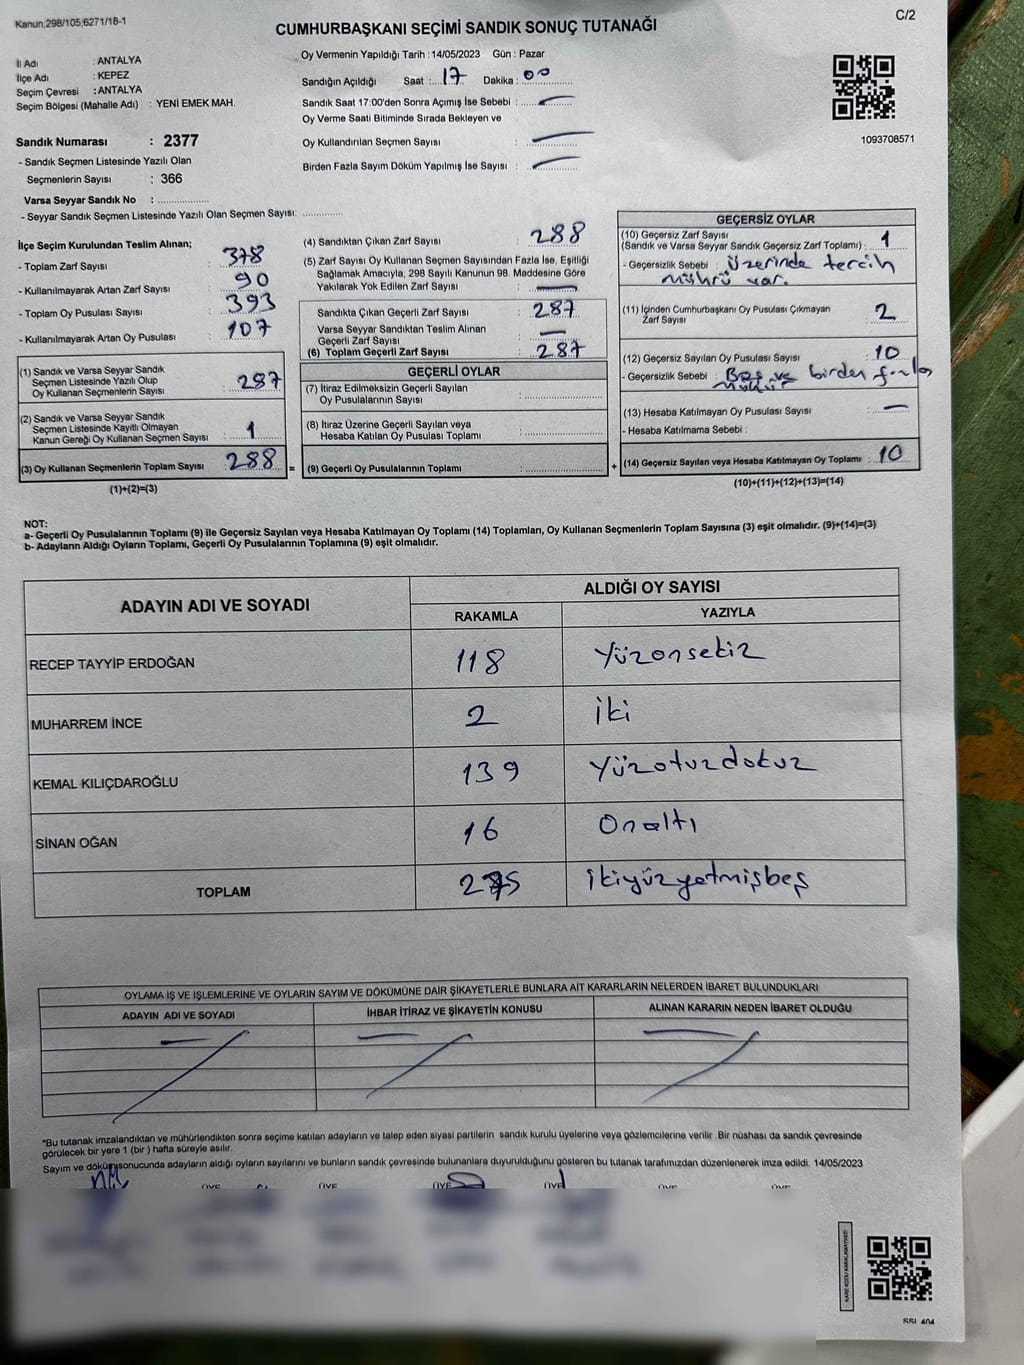 Kanun,298/105;6271/18-1
C/2
CUMHURBAŞKANI SEÇİMİ SANDIK SONUÇ TUTANAĞI
İl Adı : ANTALYA
İlçe Adı : KEPEZ
Seçim Çevresi : ANTALYA
Seçim Bölgesi (Mahalle Adı) : YENİ EMEK MAH.
Oy Vermenin Yapıldığı Tarih : 14/05/2023 Gün : Pazar
Sandığın Açıldığı Saat : 17 Dakika : 00
Sandık Saat 17:00'den Sonra Açımış İse Sebebi : —
Oy Verme Saati Bitiminde Sırada Bekleyen ve
Oy Kullandırılan Seçmen Sayısı : —
Birden Fazla Sayım Döküm Yapılmış İse Sayısı : —
1093708571
Sandık Numarası : 2377
- Sandık Seçmen Listesinde Yazılı Olan
Seçmenlerin Sayısı : 366
Varsa Seyyar Sandık No :
- Seyyar Sandık Seçmen Listesinde Yazılı Olan Seçmen Sayısı:
İlçe Seçim Kurulundan Teslim Alınan;
- Toplam Zarf Sayısı : 378
- Kullanılmayarak Artan Zarf Sayısı : 90
- Toplam Oy Pusulası Sayısı : 393
- Kullanılmayarak Artan Oy Pusulası : 107
(1) Sandık ve Varsa Seyyar Sandık
Seçmen Listesinde Yazılı Olup
Oy Kullanan Seçmenlerin Sayısı : 287
(2) Sandık ve Varsa Seyyar Sandık
Seçmen Listesinde Kayıtlı Olmayan
Kanun Gereği Oy Kullanan Seçmen Sayısı : 1
(3) Oy Kullanan Seçmenlerin Toplam Sayısı : 288 =
(1)+(2)=(3)
(4) Sandıktan Çıkan Zarf Sayısı : 288
(5) Zarf Sayısı Oy Kullanan Seçmen Sayısından Fazla İse, Eşitliği
Sağlamak Amacıyla, 298 Sayılı Kanunun 98. Maddesine Göre
Yakılarak Yok Edilen Zarf Sayısı : —
Sandıkta Çıkan Geçerli Zarf Sayısı : 287
Varsa Seyyar Sandıktan Teslim Alınan
Geçerli Zarf Sayısı : —
(6) Toplam Geçerli Zarf Sayısı : 287
GEÇERLİ OYLAR
(7) İtiraz Edilmeksizin Geçerli Sayılan
Oy Pusulalarının Sayısı :
(8) İtiraz Üzerine Geçerli Sayılan veya
Hesaba Katılan Oy Pusulası Toplamı :
(9) Geçerli Oy Pusulalarının Toplamı : +
GEÇERSİZ OYLAR
(10) Geçersiz Zarf Sayısı
(Sandık ve Varsa Seyyar Sandık Geçersiz Zarf Toplamı) : 1
- Geçersizlik Sebebi : Üzerinde tercih
mührü var.
(11) İçinden Cumhurbaşkanı Oy Pusulası Çıkmayan
Zarf Sayısı : 2
(12) Geçersiz Sayılan Oy Pusulası Sayısı : 10
- Geçersizlik Sebebi : Boş ve birden fazla
mühür
(13) Hesaba Katılmayan Oy Pusulası Sayısı : —
- Hesaba Katılmama Sebebi :
(14) Geçersiz Sayılan veya Hesaba Katılmayan Oy Toplamı : 10
(10)+(11)+(12)+(13)=(14)
NOT:
a- Geçerli Oy Pusulalarının Toplamı (9) ile Geçersiz Sayılan veya Hesaba Katılmayan Oy Toplamı (14) Toplamları, Oy Kullanan Seçmenlerin Toplam Sayısına (3) eşit olmalıdır. (9)+(14)=(3)
b- Adayların Aldığı Oyların Toplamı, Geçerli Oy Pusulalarının Toplamına (9) eşit olmalıdır.
ADAYIN ADI VE SOYADI ALDIĞI OY SAYISI
RAKAMLA YAZIYLA
RECEP TAYYİP ERDOĞAN 118 Yüzonsekiz
MUHARREM İNCE 2 iki
KEMAL KILIÇDAROĞLU 139 Yüzotuzdokuz
SİNAN OĞAN 16 Onaltı
TOPLAM 275 ikiyüzyetmişbeş
OYLAMA İŞ VE İŞLEMLERİNE VE OYLARIN SAYIM VE DÖKÜMÜNE DAİR ŞİKAYETLERLE BUNLARA AİT KARARLARIN NELERDEN İBARET BULUNDUKLARI
ADAYIN ADI VE SOYADI İHBAR İTİRAZ VE ŞİKAYETİN KONUSU ALINAN KARARIN NEDEN İBARET OLDUĞU
*Bu tutanak imzalandıktan ve mühürlendikten sonra seçime katılan adayların ve talep eden siyasi partilerin sandık kurulu üyelerine veya gözlemcilerine verilir .Bir nüshası da sandık çevresinde
görülecek bir yere 1 (bir ) hafta süreyle asılır.
Sayım ve döküm sonucunda adayların aldığı oyların sayılarını ve bunların sandık çevresinde bulunanlara duyurulduğunu gösteren bu tutanak tarafımızdan düzenlenerek imza edildi. 14/05/2023
ÜYE ÜYE ÜYE ÜYE ÜYE ÜYE